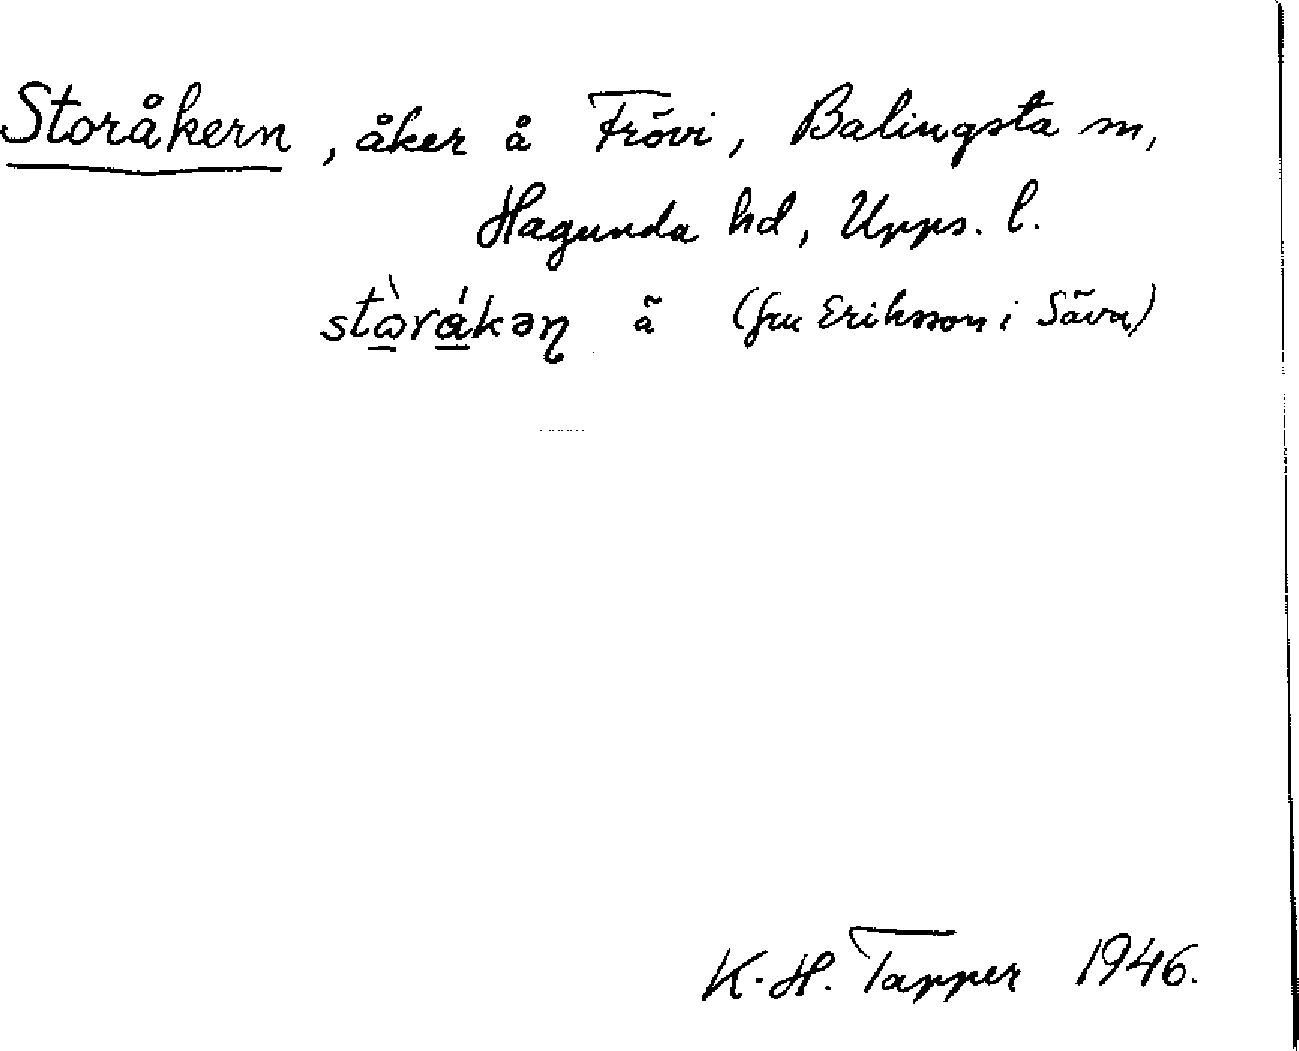 Storåkern, åker å Frövi, Balingsta sn,
Hagunda hd, Upps. l.
stòrákəɳ ã (fru Eriksson i Säva)
K.H. Tapper 1946.